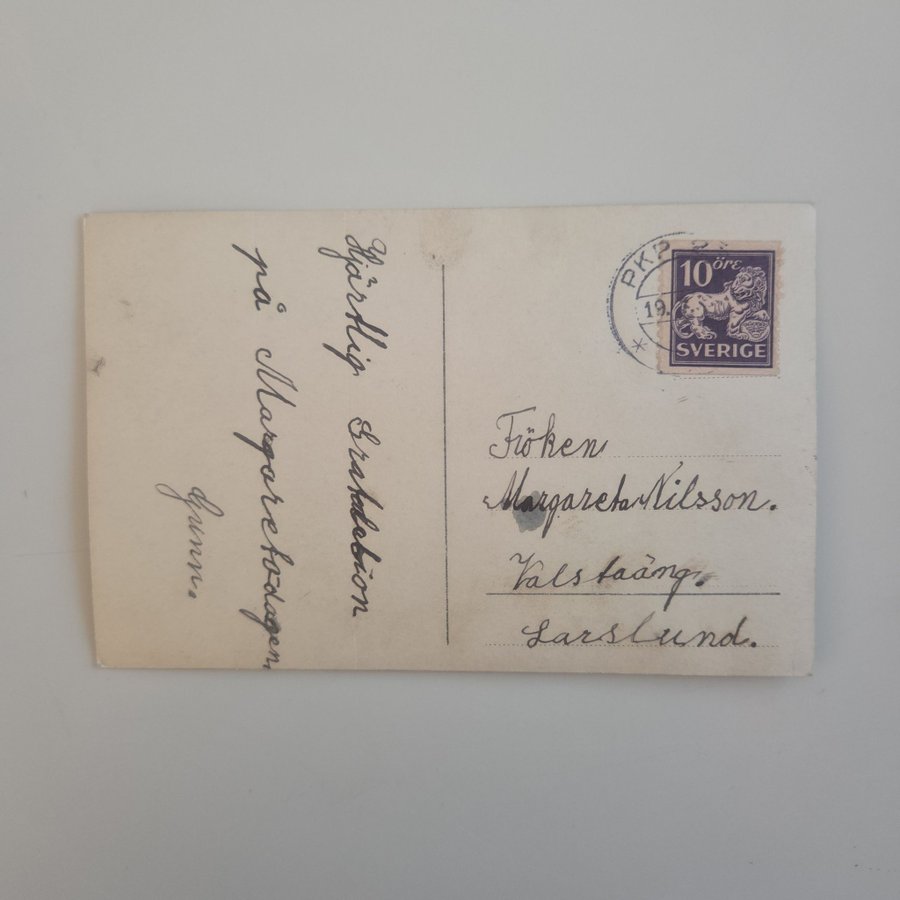 Hjärtlig Gratulation
på Margaretadagen
Gunn.
PKP
19.
10 öre
SVERIGE
Fröken
Margareta Nilsson.
Valstaäng.
Larslund.